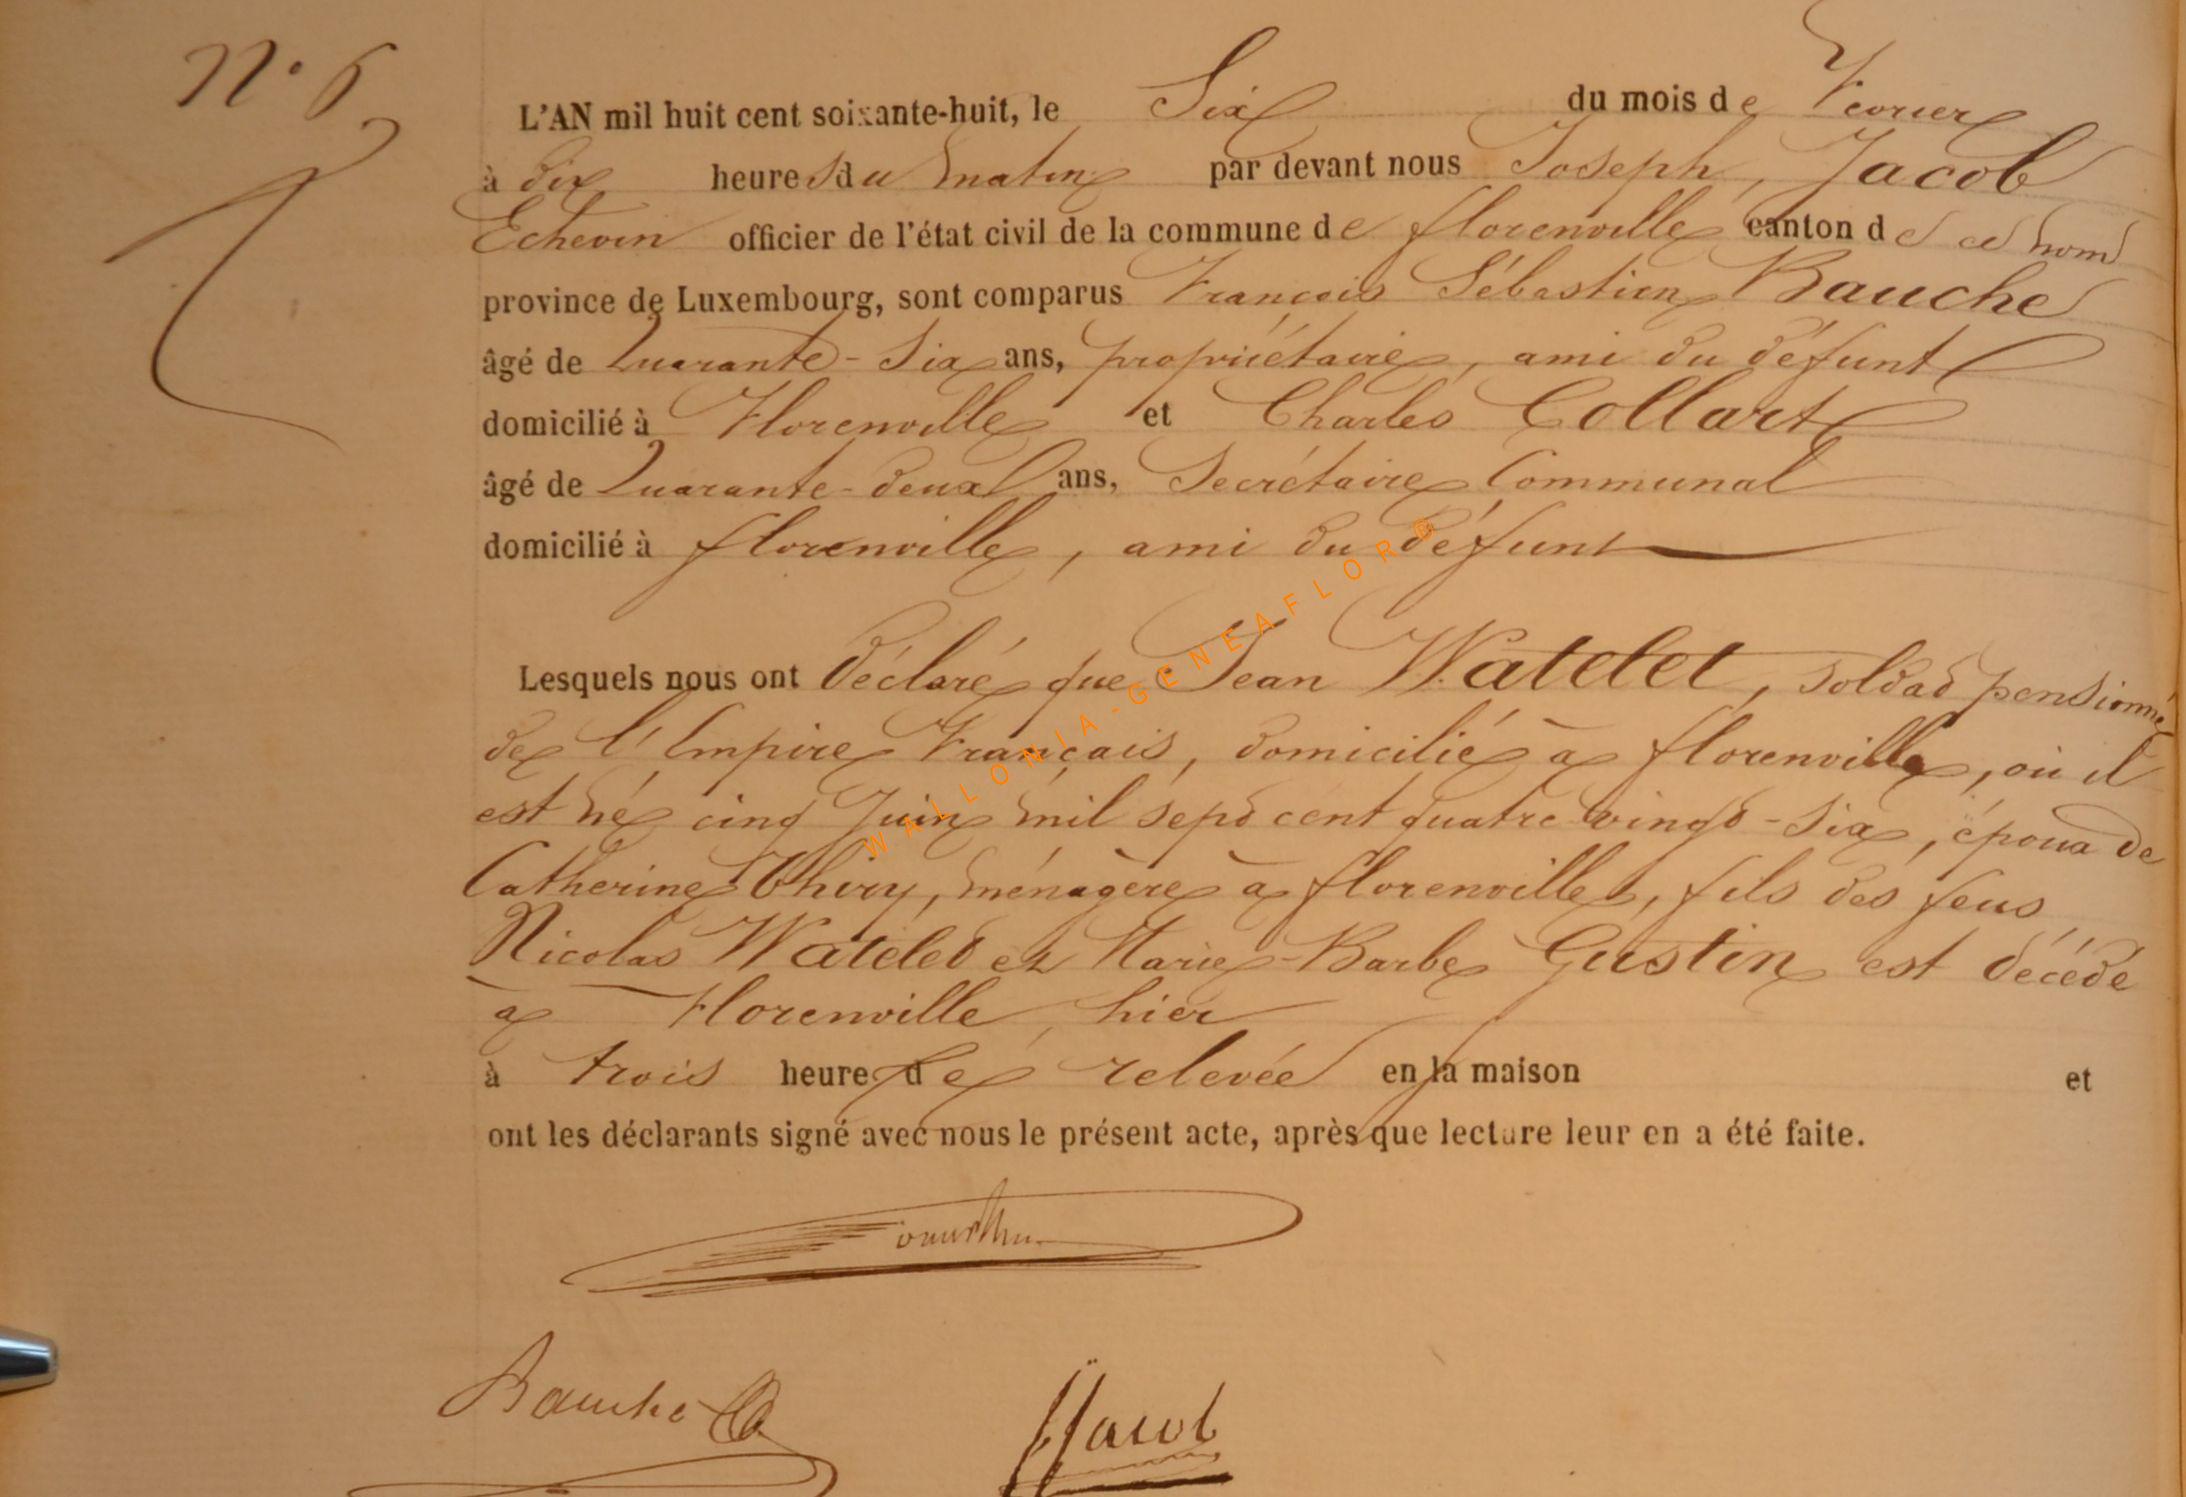 N° 6
L'AN mil huit cent soixante-huit, le Six du mois de Fevrier
à dix heures du matin par devant nous Joseph, Jacob
Echevin officier de l'état civil de la commune de florenville canton de ce nom
province de Luxembourg, sont comparus François Sébastien Bauche
âgé de Quarante-Six ans, propriétaire, ami du défunt
domicilié à Florenville et Charles Collart
âgé de Quarante-deux ans, Secrétaire Communal
domicilié à florenville, ami du défunt
Lesquels nous ont déclaré que Jean Watelet, soldat pensionné
de l'Empire Français, domicilié à florenville, où il
est né cinq Juin mil sept cent quatre vingt-six, époux de
Catherine Thiry, ménagère à florenville, fils des feus
Nicolas Watelet et Marie-Barbe Gustin est décédé
à Florenville, hier
à trois heures de relevée en la maison et
ont les déclarants signé avec nous le présent acte, après que lecture leur en a été faite.
Bauche
JJacob
WALLONIA-GENEAFLOR©